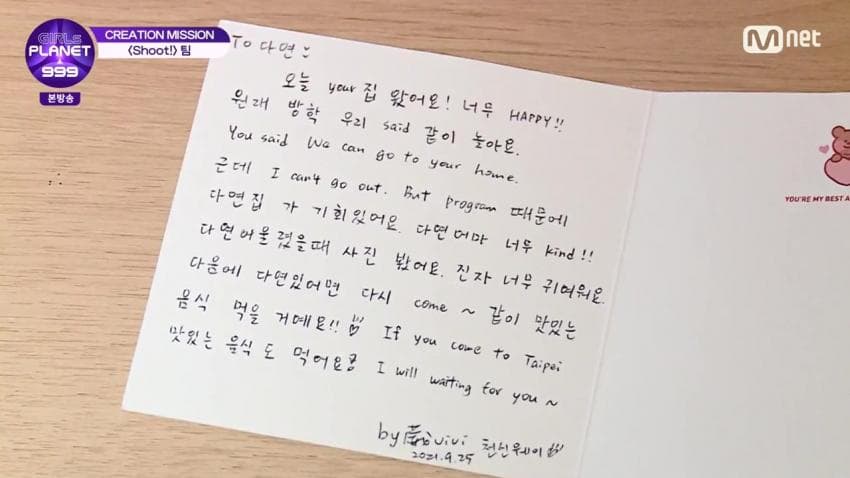 GIRLS
PLANET
999
본방송
CREATION MISSION
<Shoot!> 팀
Mnet
To 다면 :)
오늘 your 집 왔어요! 너무 HAPPY!!
원래 방학 우리 said 같이 놀아요.
You said We can go to your home.
근데 I can't go out. But program 때문에
다면집 가 기회있어요. 다면어마 너무 kind!!
다면어울렸을때 사진 봤어요. 진자 너무 귀여워요.
다음에 다면있어면 다시 come ~ 같이 맛있는
음식 먹을 거예요!! If you come to Taipei
맛있는 음식도 먹어요 I will waiting for you ~
by vivi 천신웨이
2021.9.25
YOU'RE MY BEST A